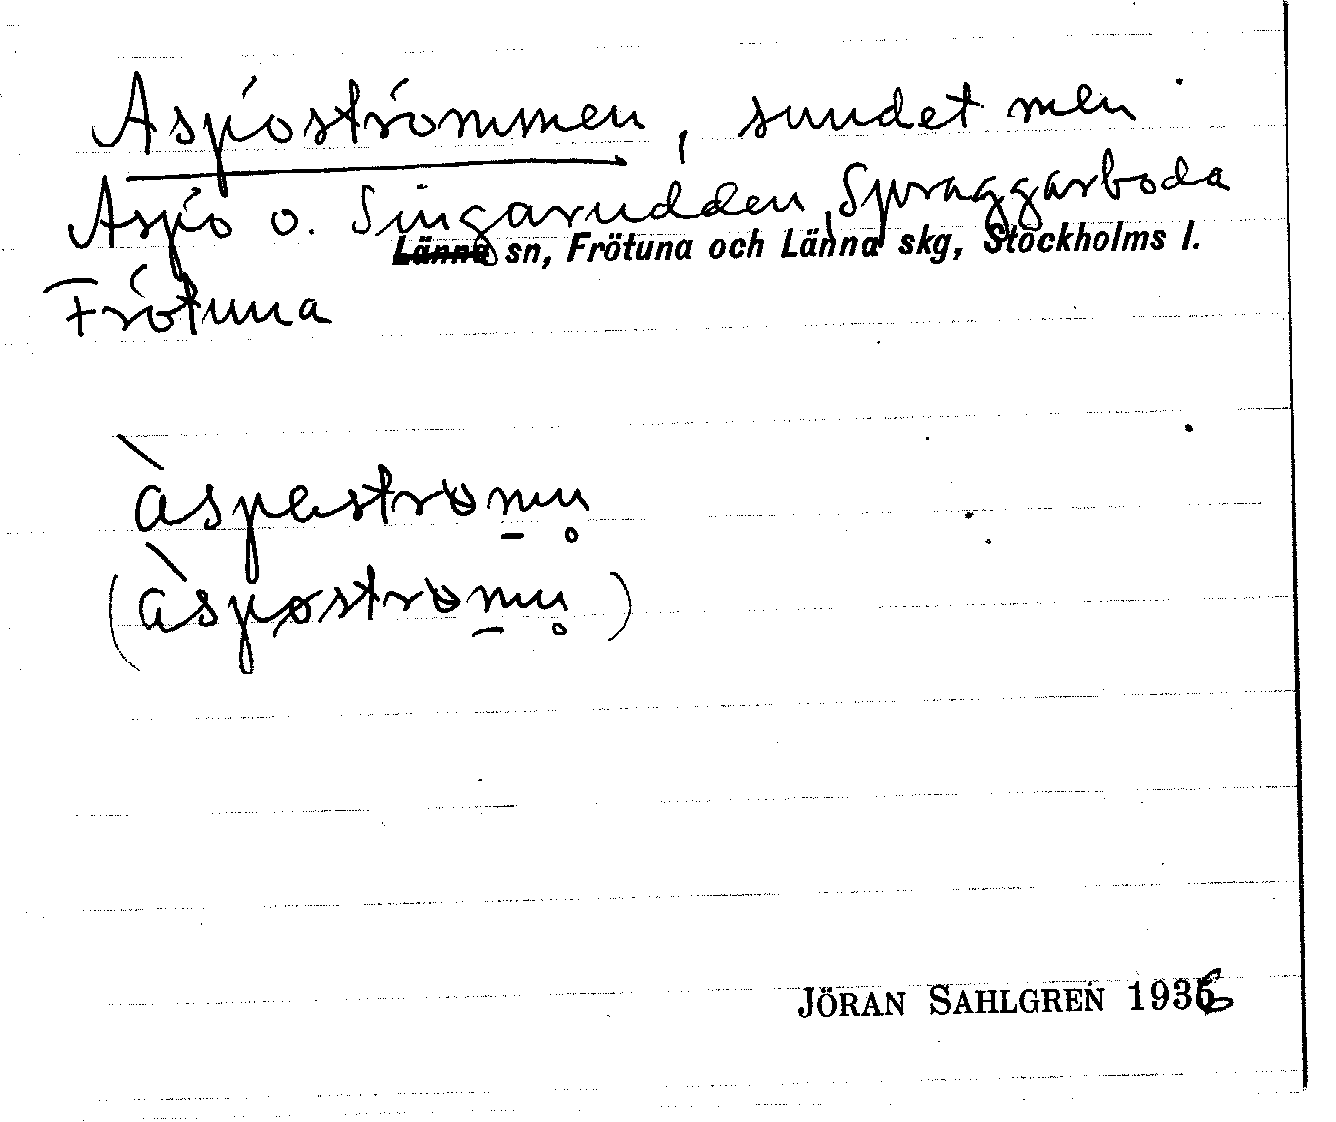 Aspöströmmen, sundet men
Aspö o. Singarudden, Spraggarboda
Länna sn, Frötuna och Länna skg, Stockholms l.
Frötuna
JÖRAN SAHLGREN 1936